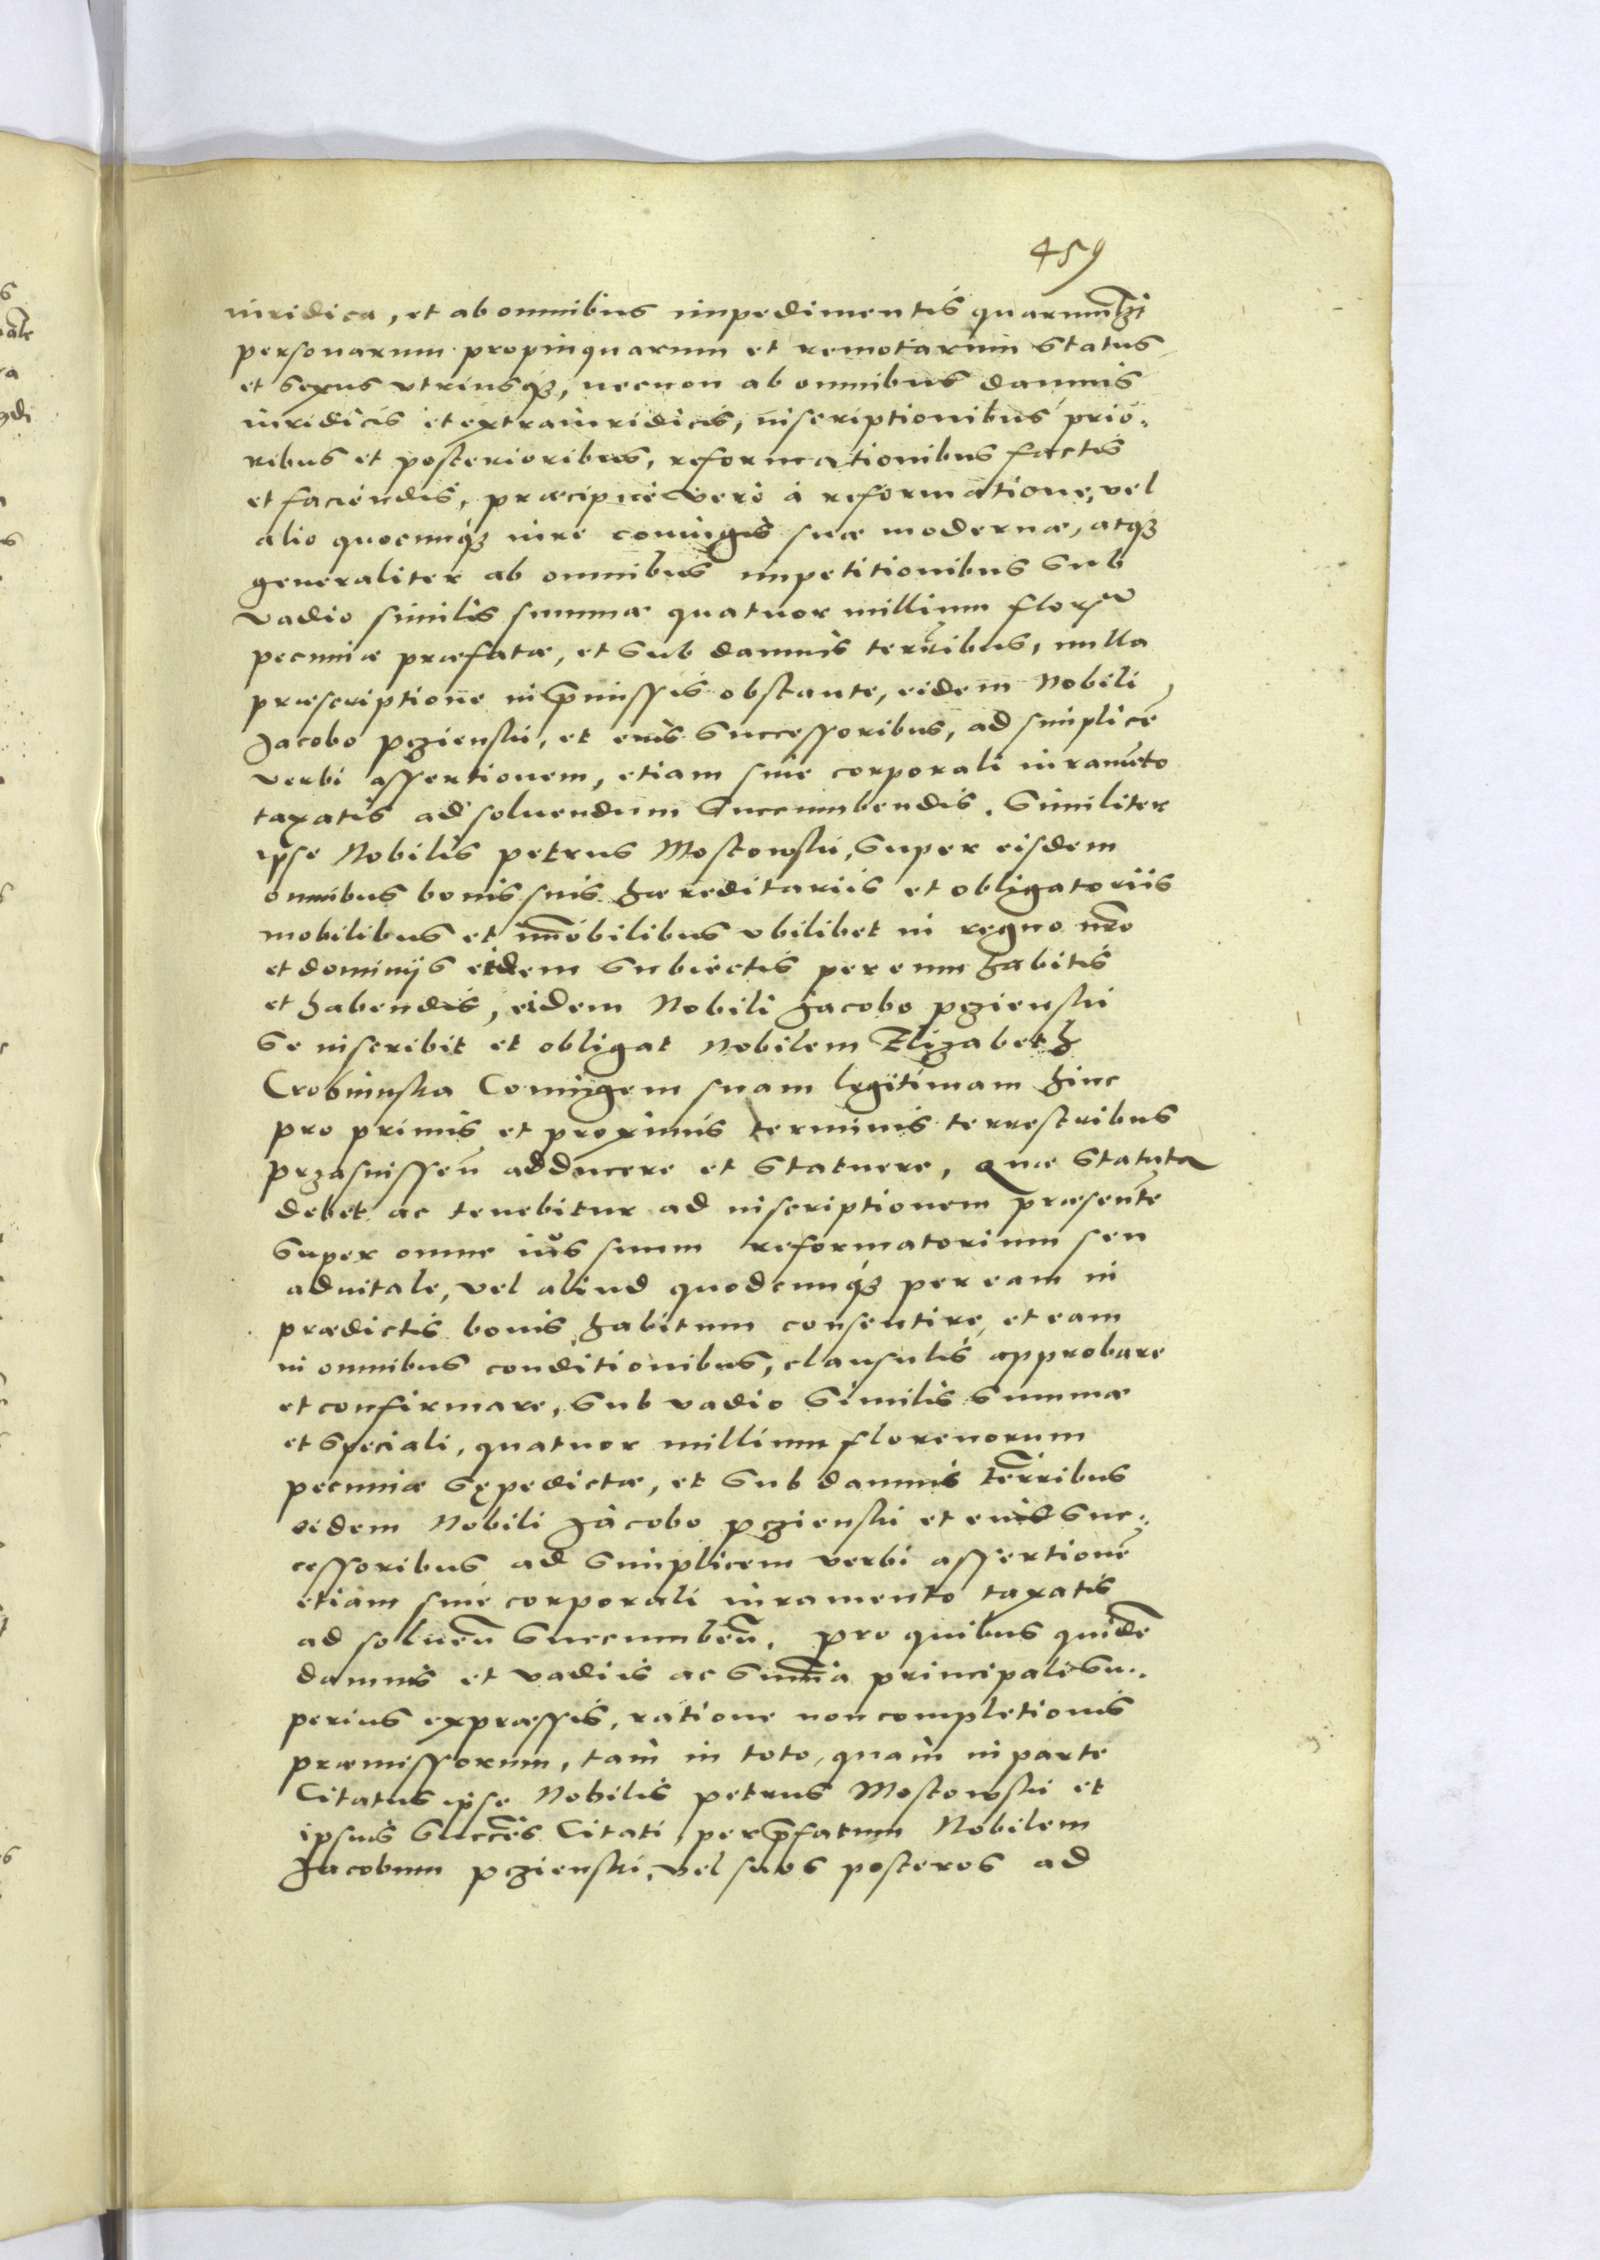 459
iuridica, et ab omnibus impedimentis quarumlibet
personarum propinquarum et remotarum status
et sexus vtriusq3, necnon ab omnibus damnis
iuridicis et extraiuridicis, inscriptionibus prio,
ribus et posterioribus, reformationibus factis
et faciendis, præcipuè verò à reformatione, vel
alio quocunq3 iure coniugis suæ modernæ, atq3
generaliter ab omnibus impetitionibus sub
vadio similis summæ quatuor millium flor
pecuniæ præfatæ, et sub damnis terribus, nulla
præscriptione in pmissis obstante, eidem Nobili
Jacobo pczienski, et eius successoribus, ad simplicē
verbi assertionem, etiam sine corporali iuramēto
taxatis ad soluendum succumbendis. Similiter
ipse Nobilis petrus Mostowski, super eisdem
omnibus bonis suis hæreditariis et obligatoriis
mobilibus et im̄obilibus vbilibet in regno nr̄o
et dominijs eidem subiectis per eum habitis
et habendis, eidem Nobili Jacobo pczienski
se inscribit et obligat Nobilem Elizabeth
Crobiunska Coniugem suam legitimam hinc
pro primis et proximis terminis terrestribus
przasnissen̄ adducere et statuere, Quæ statuta
debet ac tenebitur ad inscriptionem præsentē
super omne ius suum reformatorium seu
aduitale, vel aliud quodcunq3 per eam in
prædictis bonis habitum consentire, et eam
in omnibus conditionibus, clausulis approbare
et confirmare, sub vadio similis summæ
et speciali, quatuor millium florenorum
pecuniæ sæpedictæ, et sub damnis terribus
eidem Nobili Jacobo pczienski et eius suc,
cessoribus ad simplicem verbi assertionē
etiam sine corporali iuramento taxatis
ad soluen̄ succumben̄. pro quibus quidē
damnis et vadiis ac sum̄a principali su,
perius expræssis, ratione non completionis
præmissorum, tam in toto, quàm in parte
Citatus ipse Nobilis petrus Mostowski et
ipsius succēs Citati, per pfatum Nobilem
Jacobum pczienski, vel suos posteros ad